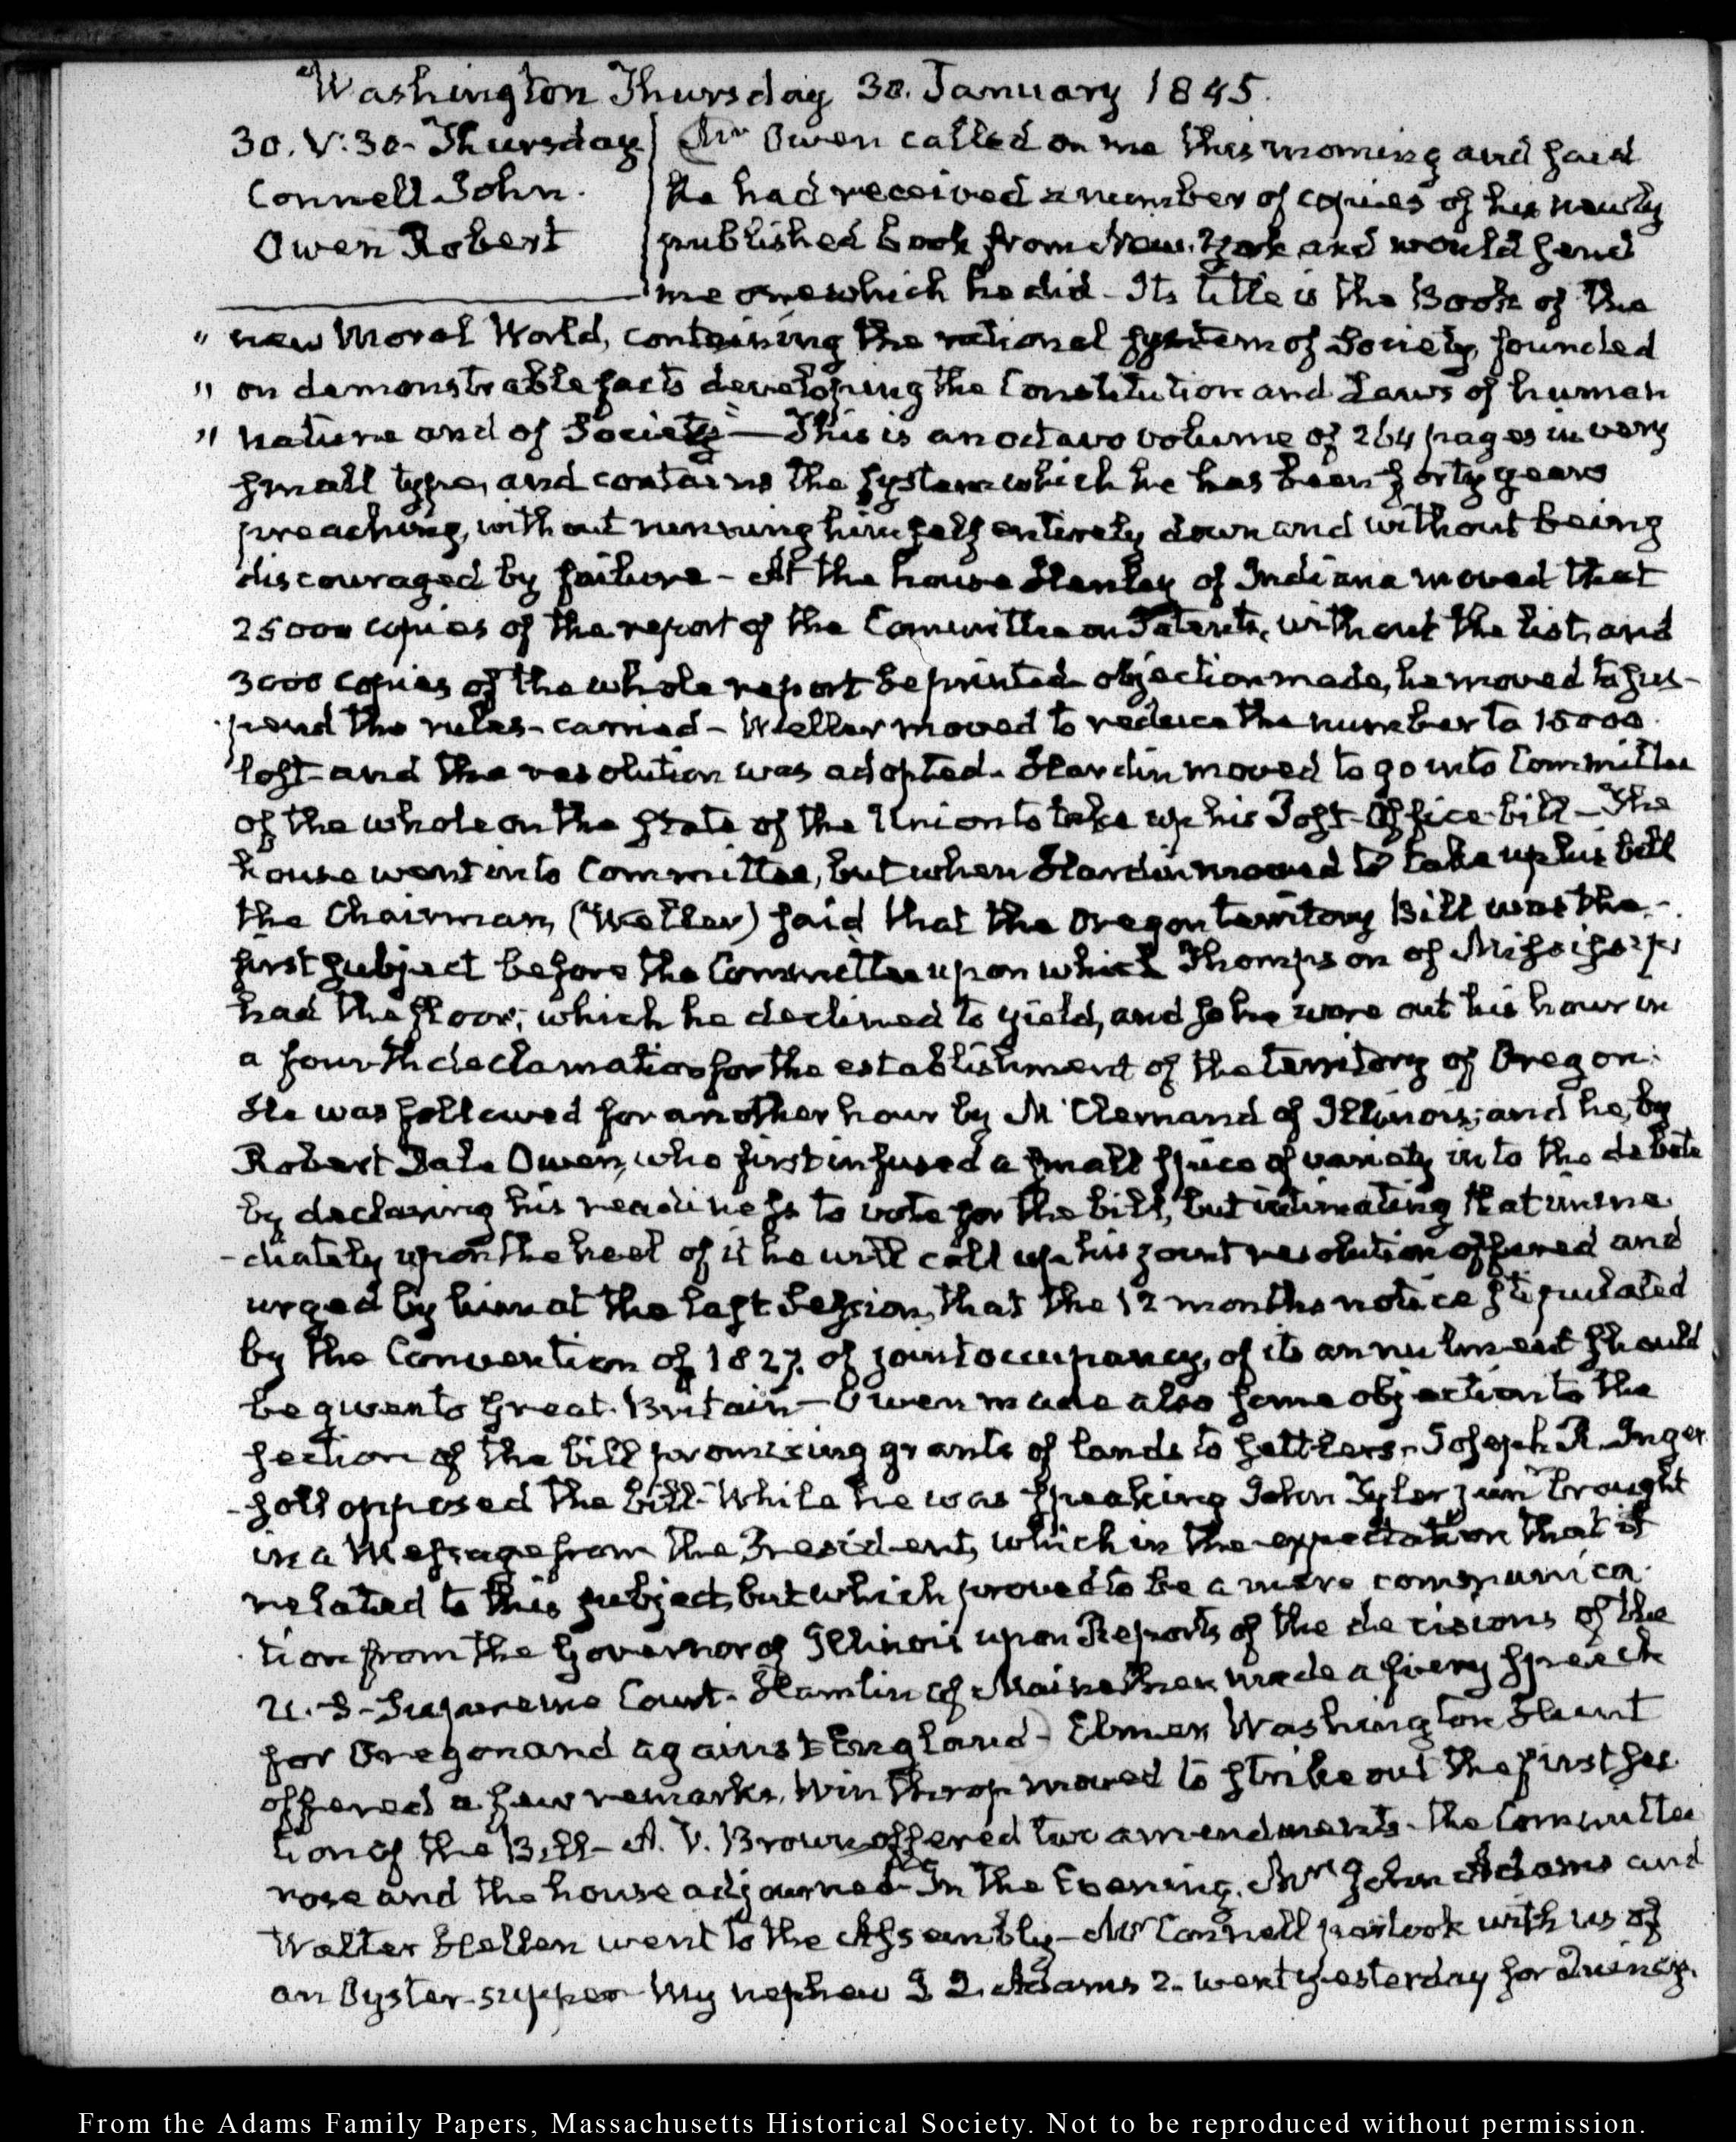 Washington Thursday 30. January 1845.
30. V:30. Thursday
Connell John.
Owen Robert
Mr Owen called on me this morning and said
he had received a number of copies of his newly
published book from New-York and would send
me one which he did – Its title is the Book of the
" new Moral World, containing the rational system of Society, founded
" on demonstrable facts developing the Constitution and Laws of human
" nature and of Society" — This is an octavo volume of 264 pages in very
small type, and contains the system which he has been forty years
preaching, without running himself entirely down and without being
discouraged by failure – At the house Henley of Indiana moved that
25000 copies of the report of the Committee on Patents, without the list, and
3000 copies of the whole report be printed – objection made, he moved to sus-
pend the rules – carried – Weller moved to reduce the number to 15000
lost – and the resolution was adopted. Hardin moved to go into Committee
of the whole on the state of the Union to take up his Post-Office bill – The
house went into Committee, but when Hardin moved to take up his bill
the Chairman, (Weller) said that the Oregon territory Bill was the
first subject before the Committee upon which Thompson of Mississippi
had the floor; which he declined to yield, and so he wore out his hour in
a fourth declamation for the establishment of the territory of Oregon.
He was followed for another hour by M'Clernand of Illinois; and he, by
Robert Dale Owen, who first infused a small spice of variety into the debate
by declaring his readiness to vote for the bill, but intimating that imme
-diately upon the heel of it he will call up his joint resolution offered and
urged by him at the last Session, that the 12 months notice stipulated
by the Convention of 1827. of joint occupancy, of its annulment should
be given to Great-Britain – Owen made also some objection to the
section of the bill promising grants of lands to settlers. Joseph R. Inger
-soll opposed the bill – While he was speaking John Tyler junr brought
in a Message from the President, which in the expectation that it
related to this subject, but which proved to be a mere communica-
tion from the Governor of Illinois upon Reports of the decisions of the
U.S. Supreme Court. Hamlin of Maine then made a fiery speech
for Oregon and against England – Washington Hunt
offered a few remarks, Winthrop moved to strike out the first sec
tion of the Bill – A. V. Brown offered two amendments – the Committee
rose and the house adjourned – In the Evening, Mrs John Adams and
Walter Hellen went to the Assembly – Mr Connell partook with us of
an Oyster-supper – My nephew I. H. Adams 2. went yesterday for Quincy.
From the Adams Family Papers, Massachusetts Historical Society. Not to be reproduced without permission.